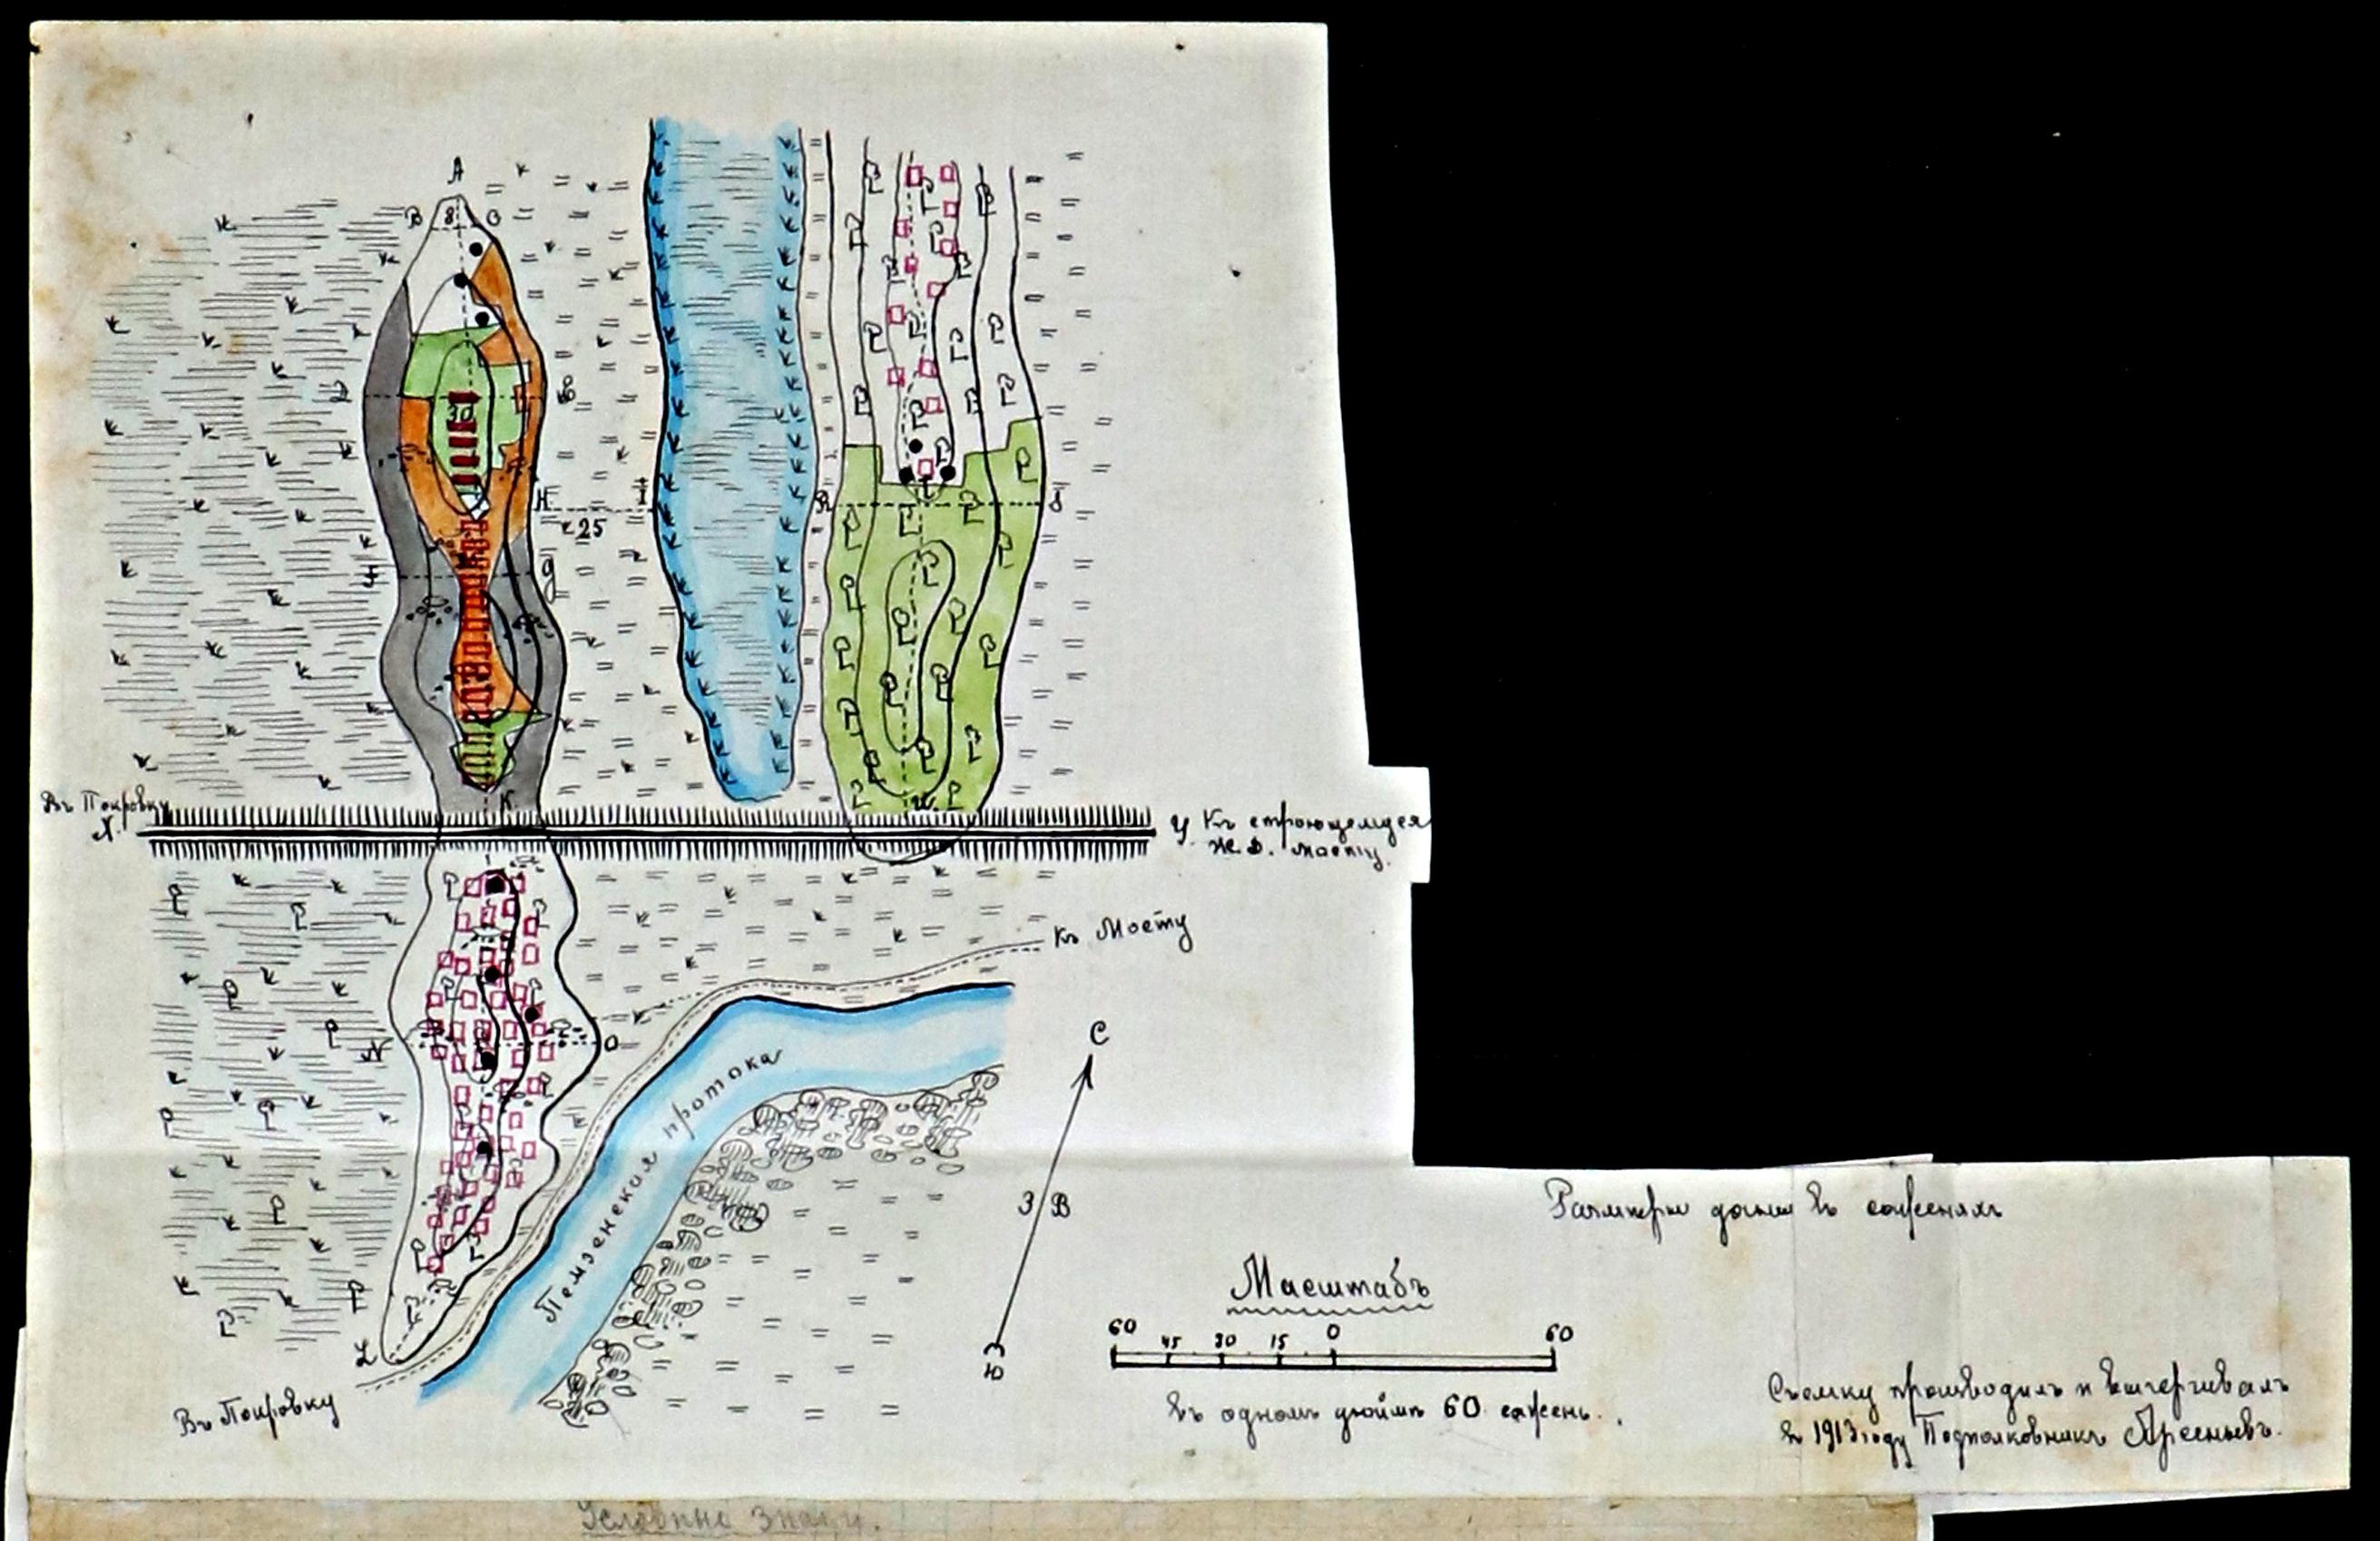 А
В
8
30
Н
25
g
Въ Покровку
Х.
К.
У. Къ строющемуся
Ж.Д. мосту.
Къ Мосту
N
О
С
Пемзенская протока
З В
Ю
L
Въ Покровку
Размеры даны въ саженяхъ
Масштабъ
60 45 30 15 0 60
Въ одномъ дюймѣ 60 сажень.
Съемку производилъ и вычерчивалъ
въ 1913 году Подполковникъ Арсеньевъ.
Условные знаки.